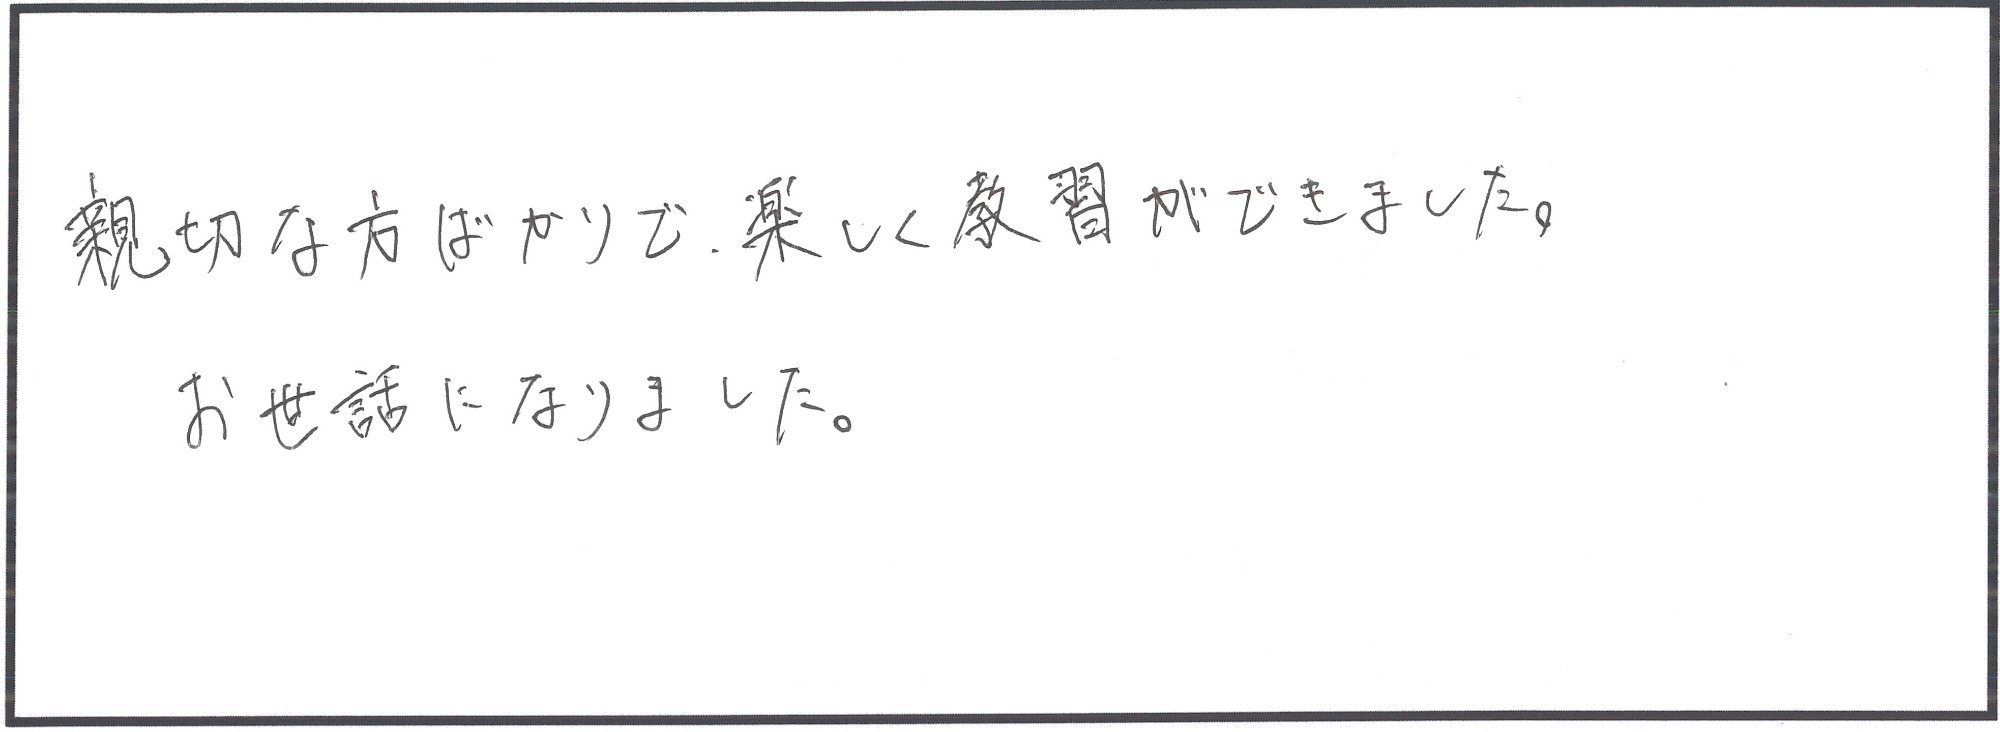 親切な方ばかりで、楽しく教習ができました。
お世話になりました。